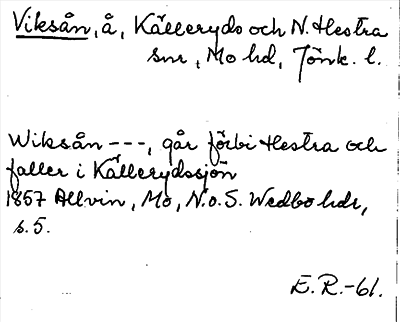 Viksån, å, Källeryds och N. Hestra
snr, Mo hd, Jönk. l.
Wiksån ---, går förbi Hestra och
faller i Källerydssjön
1857 Allvin, Mo, N. o. S. Wedbo hdr,
s. 5.
E. R. -61.